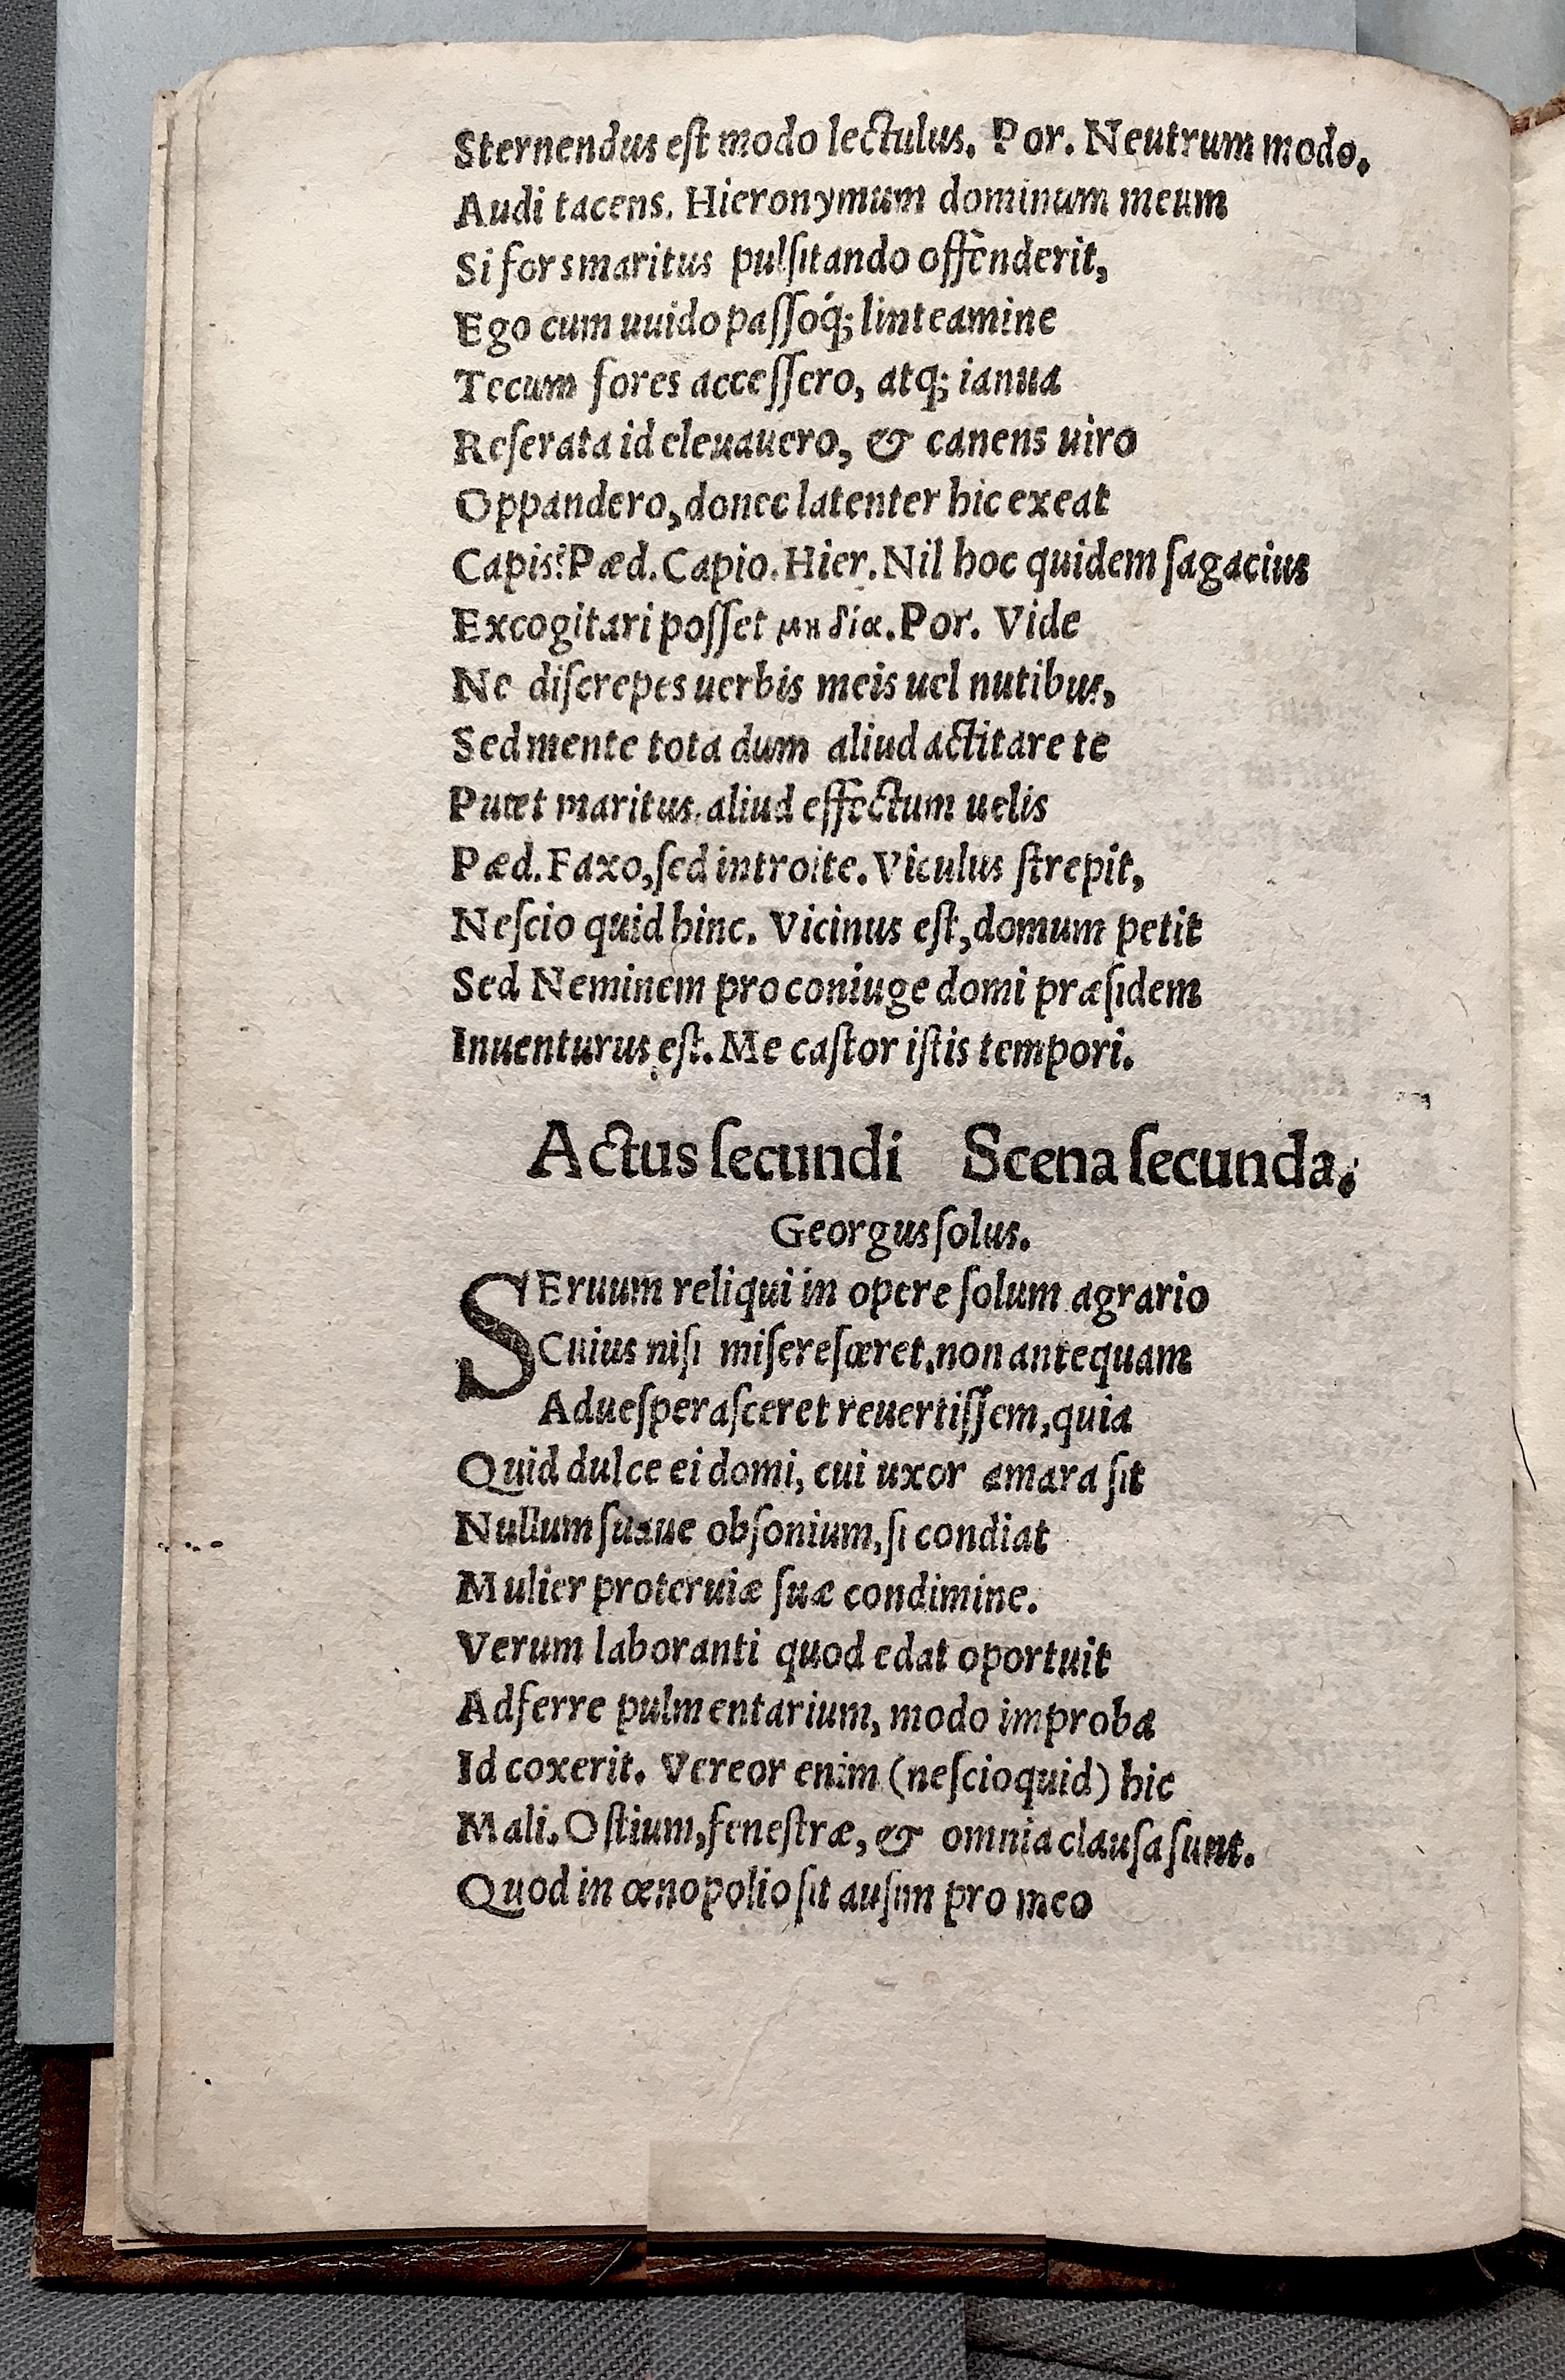 Sternendus eſt modo lectulus. Por. Neutrum modo.
Audi tacens. Hieronymum dominum meum
Si fors maritus pulſitando offenderit,
Ego cum uuido paſſoq́; linteamine
Tecum fores acceſſero, atq; ianua
Reſerata id eleuauero, & canens uiro
Oppandero, donec latenter hic exeat
Capis? Pæd. Capio. Hier. Nil hoc quidem ſagacius
Excogitari poſſet μὴ δία. Por. Vide
Ne diſcrepes uerbis meis uel nutibus,
Sed mente tota dum aliud actitare te
Putet maritus, aliud effectum uelis
Pæd. Faxo, ſed introite. Viculus ſtrepit,
Neſcio quid hinc. Vicinus eſt, domum petit
Sed Neminem pro coniuge domi præſidem
Inuenturus eſt. Me caſtor iſtis tempori.
Actus ſecundi Scena ſecunda.
Georgus ſolus.
SEruum reliqui in opere ſolum agrario
Cuius niſi miſereſceret, non antequam
Adueſperaſceret reuertiſſem, quia
Quid dulce ei domi, cui uxor amara ſit
Nullum ſuaue obſonium, ſi condiat
Mulier proteruiæ ſuæ condimine.
Verum laboranti quod edat oportuit
Adferre pulmentarium, modo improba
Id coxerit. Vereor enim (neſcioquid) hic
Mali. Oſtium, feneſtræ, & omnia clauſa ſunt.
Quod in œnopolio ſit auſim pro meo